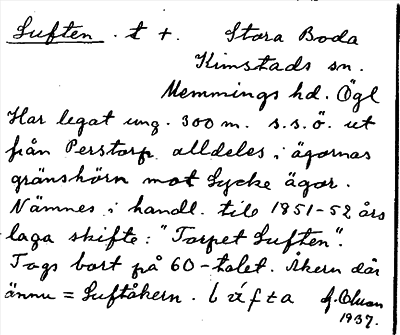 Luften . t +. Stora Boda
Kimstads sn.
Memmings hd. Ögl
Har legat ung. 300 m. s.s.ö. ut
från Perstorp alldeles i ägornas
gränshörn mot Lycke ägor.
Nämnes i handl. till 1851-52 års
laga skifte: "Torpet Luften".
Togs bort på 60-talet. Åkern där
ännu = Luftåkern.
1937.